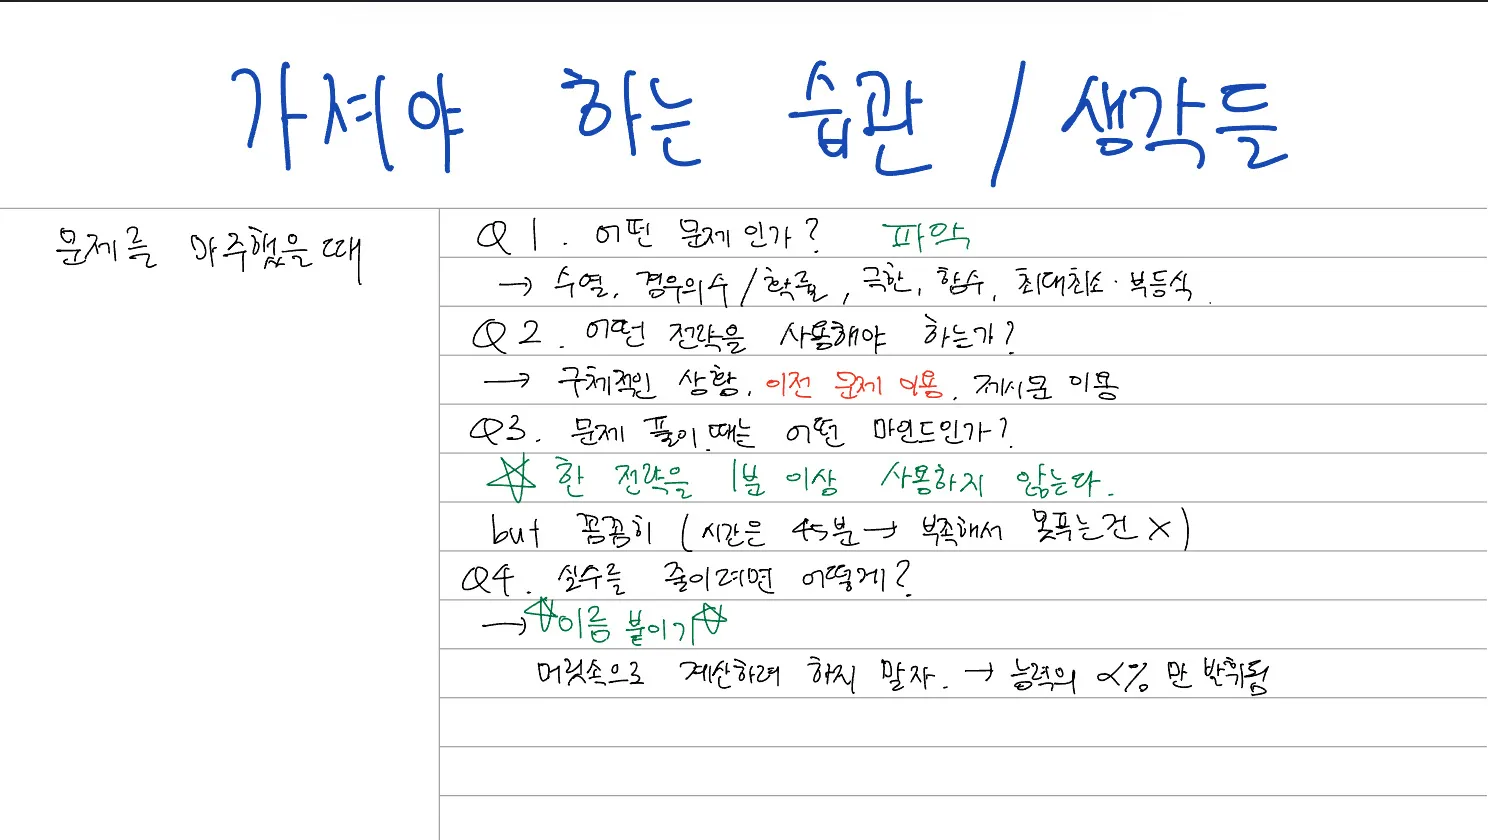 가져야 하는 습관 / 생각들
문제를 마주했을 때
Q1. 어떤 문제인가? 파악
→ 수열, 경우의 수 / 확률, 극한, 함수, 최대최소·부등식.
Q2. 어떤 전략을 사용해야 하는가?
→ 구체적인 상황, 이전 문제 이용, 제시문 이용
Q3. 문제 풀이 때는 어떤 마인드인가?
☆ 한 전략을 1분 이상 사용하지 않는다.
but 꼼꼼히 (시간은 45분 → 부족해서 못푸는건 X)
Q4. 실수를 줄이려면 어떻게?
→ ☆이름 붙이기☆
머릿속으로 계산하려 하지 말자. → 능력의 α% 만 발휘됨